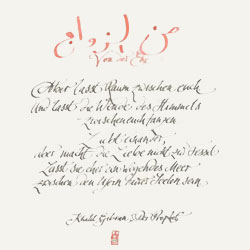 Von der Ehe
Aber lasst Raum zwischen euch
Und lasst die Winde des Himmels
zwischen euch tanzen
Liebt einander,
aber macht die Liebe nicht zur Fessel
Lasst sie eher ein wogendes Meer
zwischen den Ufern eurer Seelen sein
Khalil Gibran Der Prophet